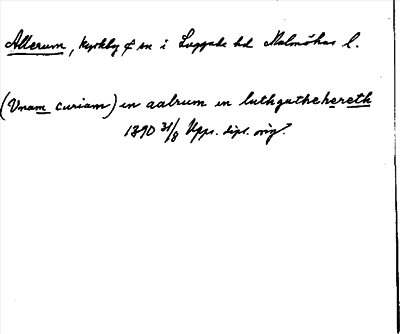 Allerum, kyrkby & sn i Luggude hd Malmöhus l.
(Unam curiam) in aalrum in luthguthehereth
1390 31/8 Upps. dipl. orig.